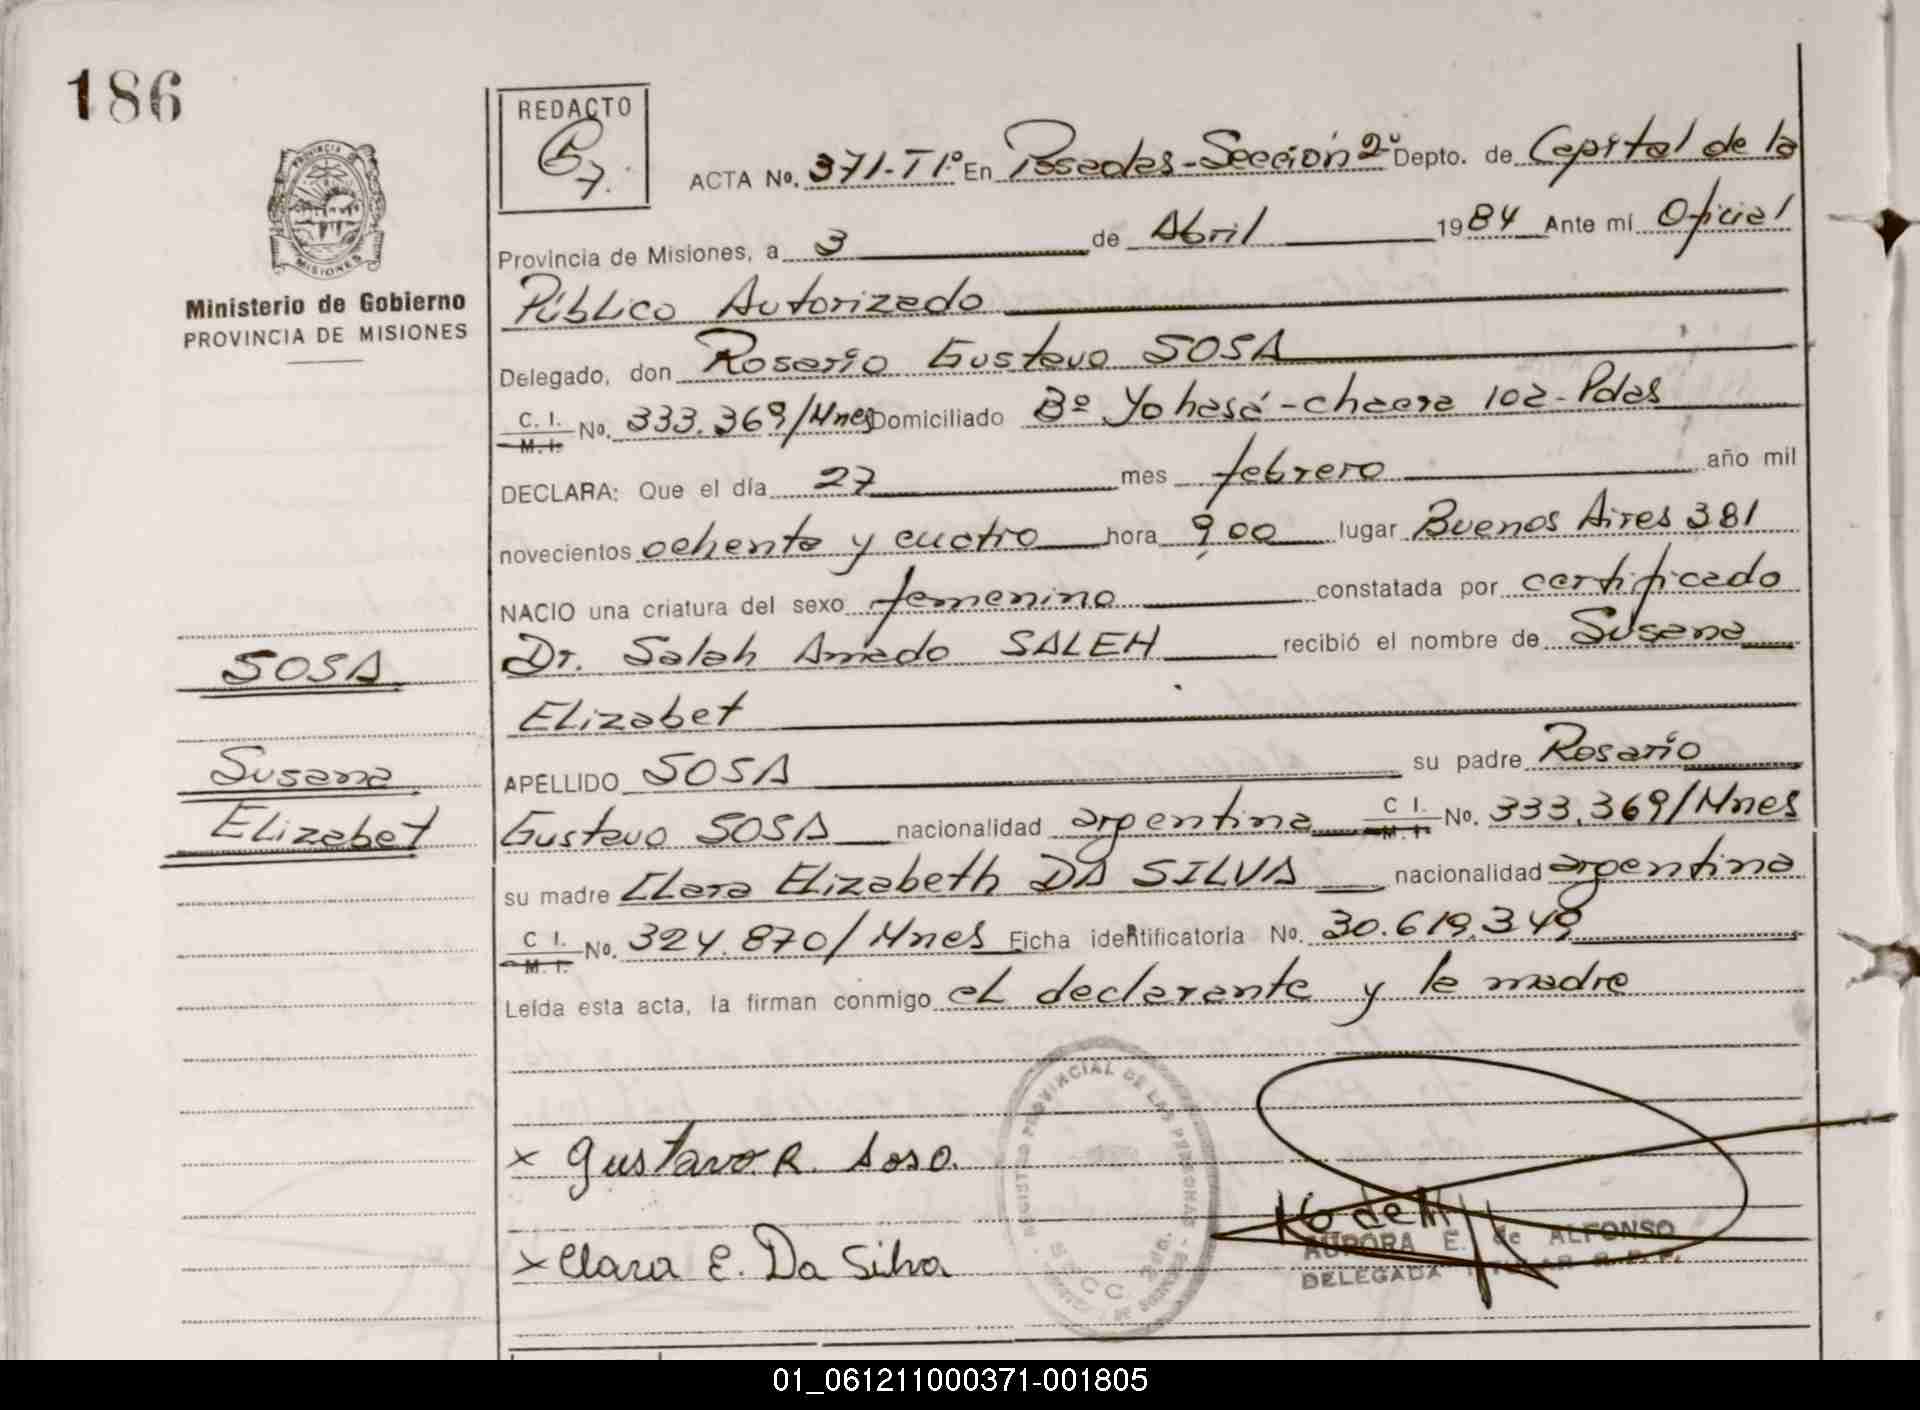 186
REDACTO
ACTA No. 371-T1º En Posadas-Sección 2º Depto. de Capital de la
Provincia de Misiones, a 3 de Abril 1984 Ante mí Oficial
Público Autorizado
Delegado, don Rosario Gustavo SOSA
C. I. M. I. No. 333.369/Mnes Domiciliado Bº Yohasá-chacra 102-Pdas
DECLARA: Que el día 27 mes febrero año mil
novecientos ochenta y cuatro hora 9,00 lugar Buenos Aires 381
NACIO una criatura del sexo femenino constatada por certificado
Dr. Salah Amado SALEH recibió el nombre de Susana
Elizabet
APELLIDO SOSA su padre Rosario
Gustavo SOSA nacionalidad argentina C I. M. I. No. 333.369/Mnes
su madre Clara Elizabeth DA SILVA nacionalidad argentina
C I. M. I. No. 324.870/Mnes Ficha identificatoria No. 30.619.349
Leída esta acta, la firman conmigo el declarante y la madre
PROVINCIA DE
MISIONES
Ministerio de Gobierno
PROVINCIA DE MISIONES
SOSA
Susana
Elizabet
x Gustavo R. Sosa.
x Clara E. Da Silva
REGISTRO PROVINCIAL DE LAS PERSONAS
SECC. 2da.
AURORA E. de ALFONSO
DELEGADA
01_061211000371-001805